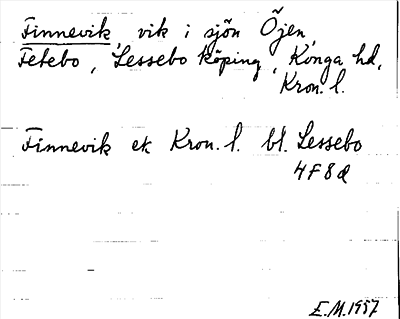 Finnevik, vik i sjön Öjen,
Fetebo, Lessebo köping, Konga hd,
Kron. l.
Finnevik ek Kron. l. bl. Lessebo
4F8d
E.M. 1957